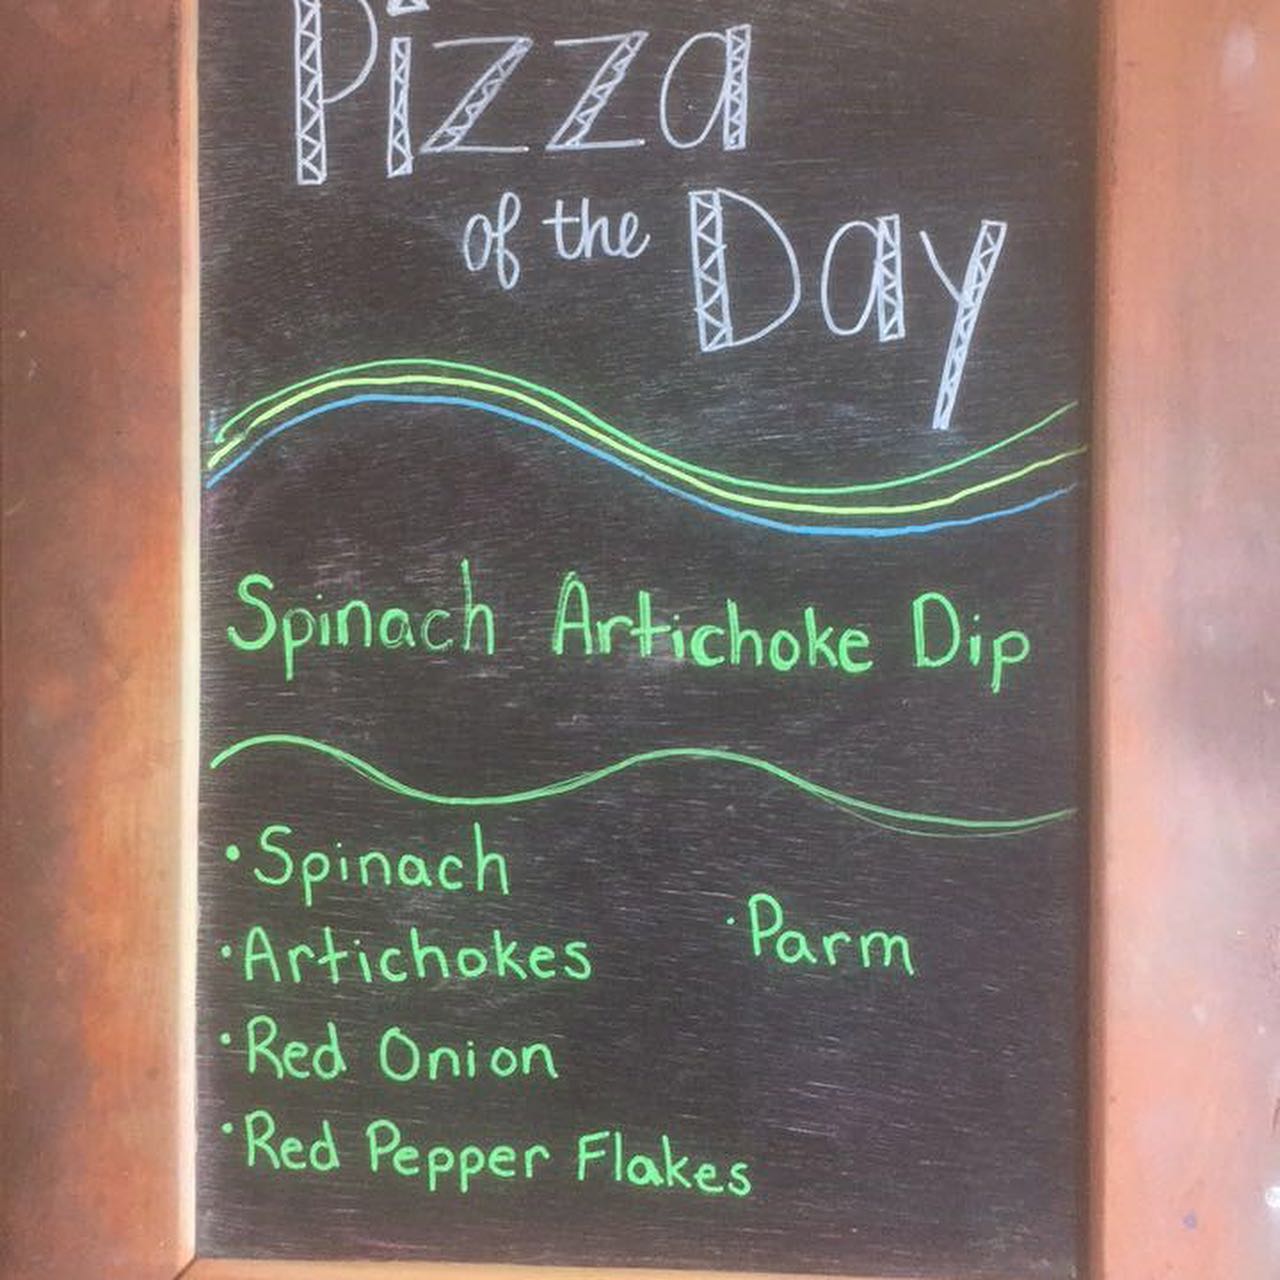 Pizza
of the Day
Spinach Artichoke Dip
• Spinach
• Artichokes
• Red Onion
• Red Pepper Flakes
• Parm